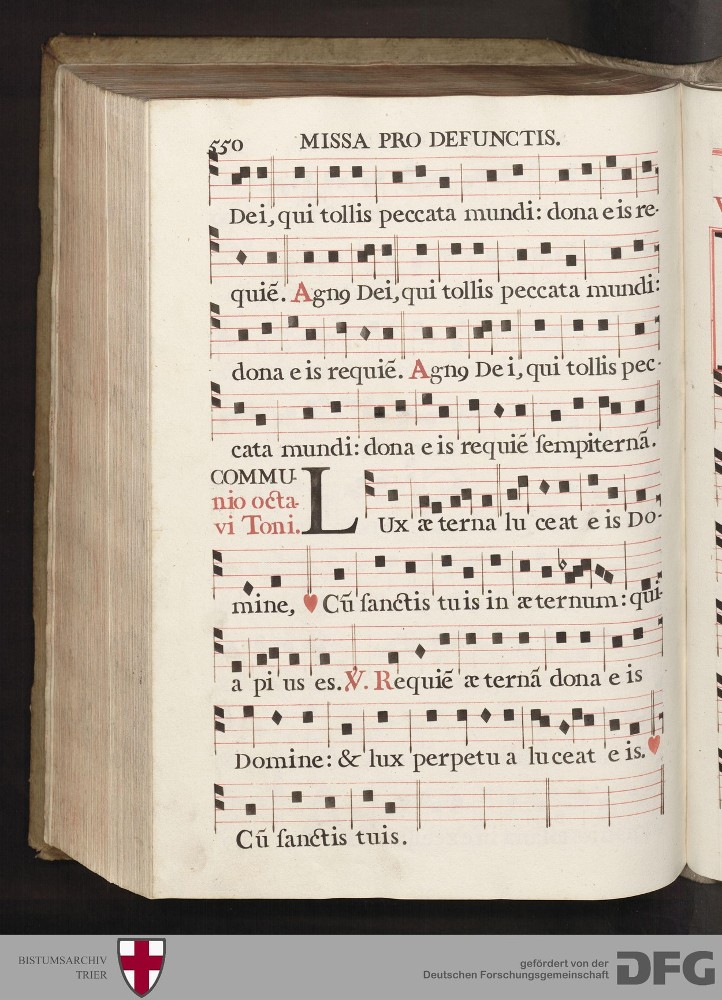 550 MISSA PRO DEFUNCTIS.
Dei, qui tollis peccata mundi: dona eis re-
quiẽ. Agnꝯ Dei, qui tollis peccata mundi:
dona eis requiẽ. Agnꝯ Dei, qui tollis pec-
cata mundi: dona eis requiẽ ſempiternã.
COMMU-
nio octa-
vi Toni.
LUx æterna luceat eis Do-
mine, ♥ Cũ ſanctis tuis in æternum: qui-
a pius es. ℣. Requiẽ æternã dona eis
Domine: & lux perpetua luceat eis. ♥
Cũ ſanctis tuis.
BISTUMSARCHIV
TRIER
gefördert von der
Deutschen Forschungsgemeinschaft
DFG